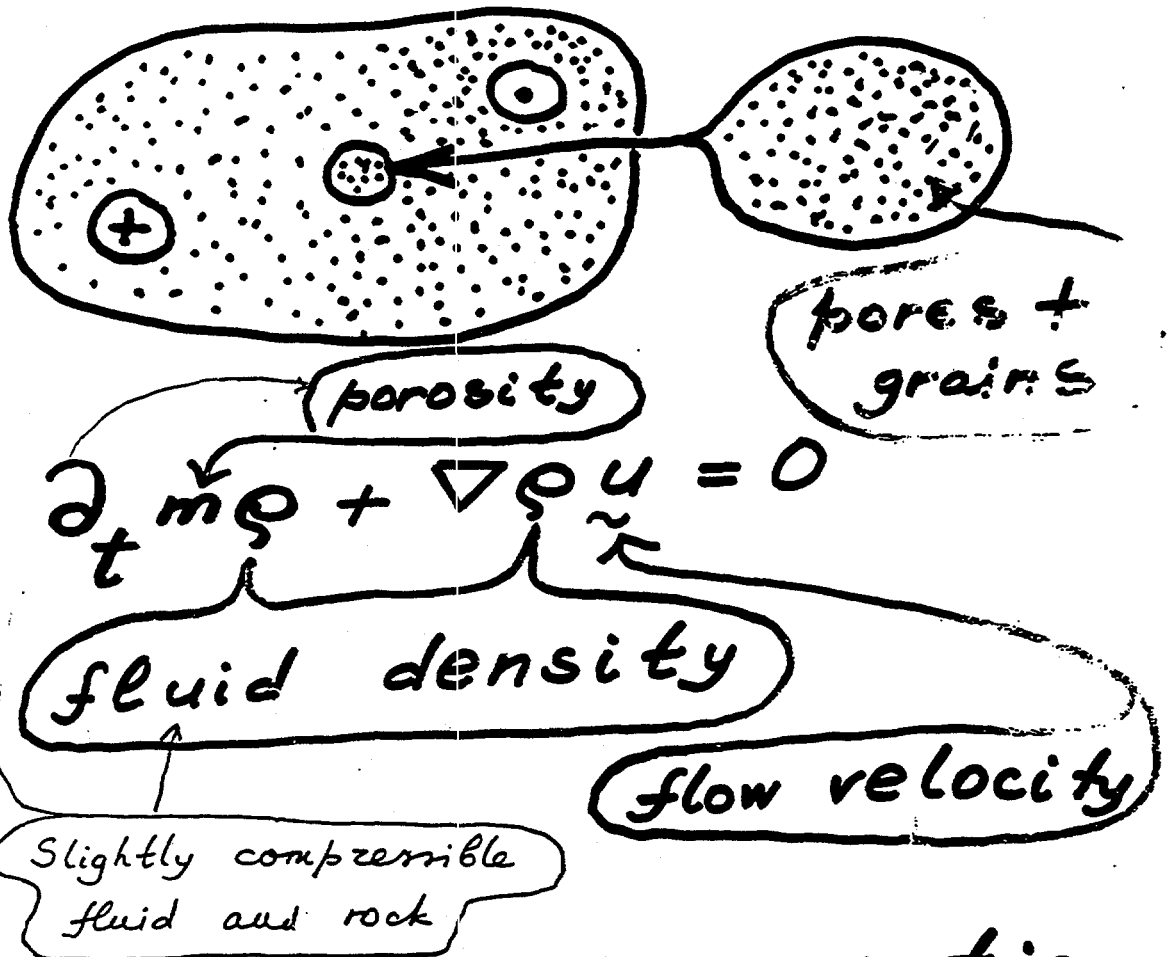 +
pores +
grains
porosity
∂ₜ mρ + ∇ρṵ = 0
fluid density
flow velocity
Slightly compressible
fluid and rock